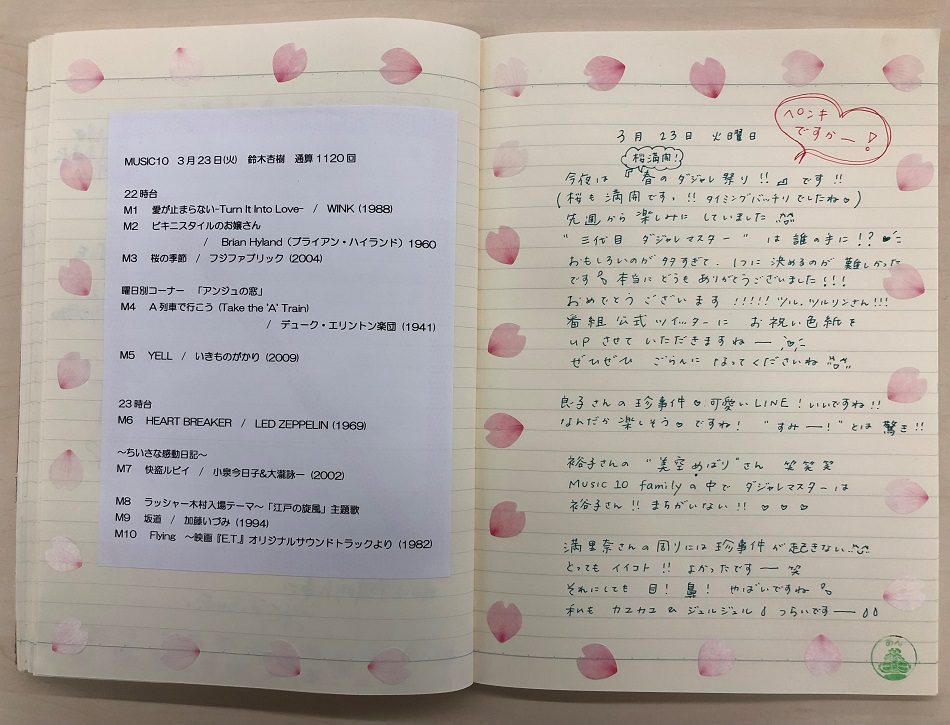 MUSIC10 3月23日(火) 鈴木杏樹 通算1120回
22時台
M1 愛が止まらない-Turn It Into Love- / WINK (1988)
M2 ビキニスタイルのお嬢さん
/ Brian Hyland(ブライアン・ハイランド)1960
M3 桜の季節 / フジファブリック(2004)
曜日別コーナー 「アンジュの窓」
M4 A列車で行こう(Take the 'A' Train)
/ デューク・エリントン楽団(1941)
M5 YELL / いきものがかり(2009)
23時台
M6 HEART BREAKER / LED ZEPPELIN (1969)
~ちいさな感動日記~
M7 快盗ルビイ / 小泉今日子&大瀧詠一(2002)
M8 ラッシャー木村入場テーマ~「江戸の旋風」主題歌
M9 坂道 / 加藤いづみ(1994)
M10 Flying ~映画『E.T.』オリジナルサウンドトラックより(1982)
ペンキ
ですかー!
3月 23日 火曜日
桜満開!
今夜は 『春のダジャレ祭り!!』です!!
(桜も満開です。!!タイミングバッチリでしたね♡)
先週から楽しみにしていました
"三代目 ダジャレマスター" は誰の手に!?
おもしろいのが多すぎて、1つに決めるのが難しかった
です 本当にどうもありがとうございました!!!
おめでとうございます!!!!!ツル,ツルリンさん!!!
番組公式ツイッターに お祝い色紙を
UPさせていただきますねー
ぜひぜひ ごらんになってくださいね
良子さんの珍事件♡可愛いLINE!いいですね!!
なんだか楽しそう♡ですね! "すみー!"とは驚き!!
裕子さんの "美空めばり"さん 笑笑笑
Music 10 familyの中でダジャレマスターは
裕子さん!!まちがいない!! ♡♡♡
満里奈さんの周りには珍事件が起きない
とってもイイコト!!よかったですー 笑
それにしても 目!鼻! やばいですね
私も カユカユ & ジュルジュル つらいですー